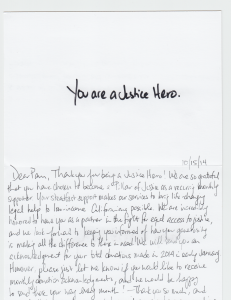 You are a Justice Hero.
10/15/14
Dear Pam, Thank you for being a Justice Hero! We are so grateful
that you have chosen to become a Pillar of Justice as a recurring monthly
supporter. Your steadfast support makes our services to bring life-changing
legal help to low-income Californians possible. We are incredibly
honored to have you as a partner in the fight for equal access to justice,
and we look forward to keeping you informed of how your generosity
is making all the difference to those in need! We will send you an
acknowledgment for your total donations made in 2014 in early January.
However please just let me know if you would like to receive
monthly donation acknowledgments, and we would be happy
to send those your way every month! - Thank you so much, and